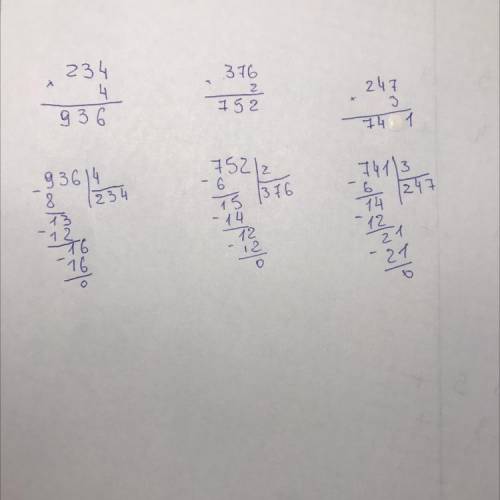 234 376 247
× 4 · 2 × 3
936 752 741
- 936 | 4 - 752 | 2 - 741 | 3
8 | 234 6 | 376 6 | 247
13 15 14
- 12 - 14 - 12
16 12 21
- 16 - 12 - 21
0 0 0